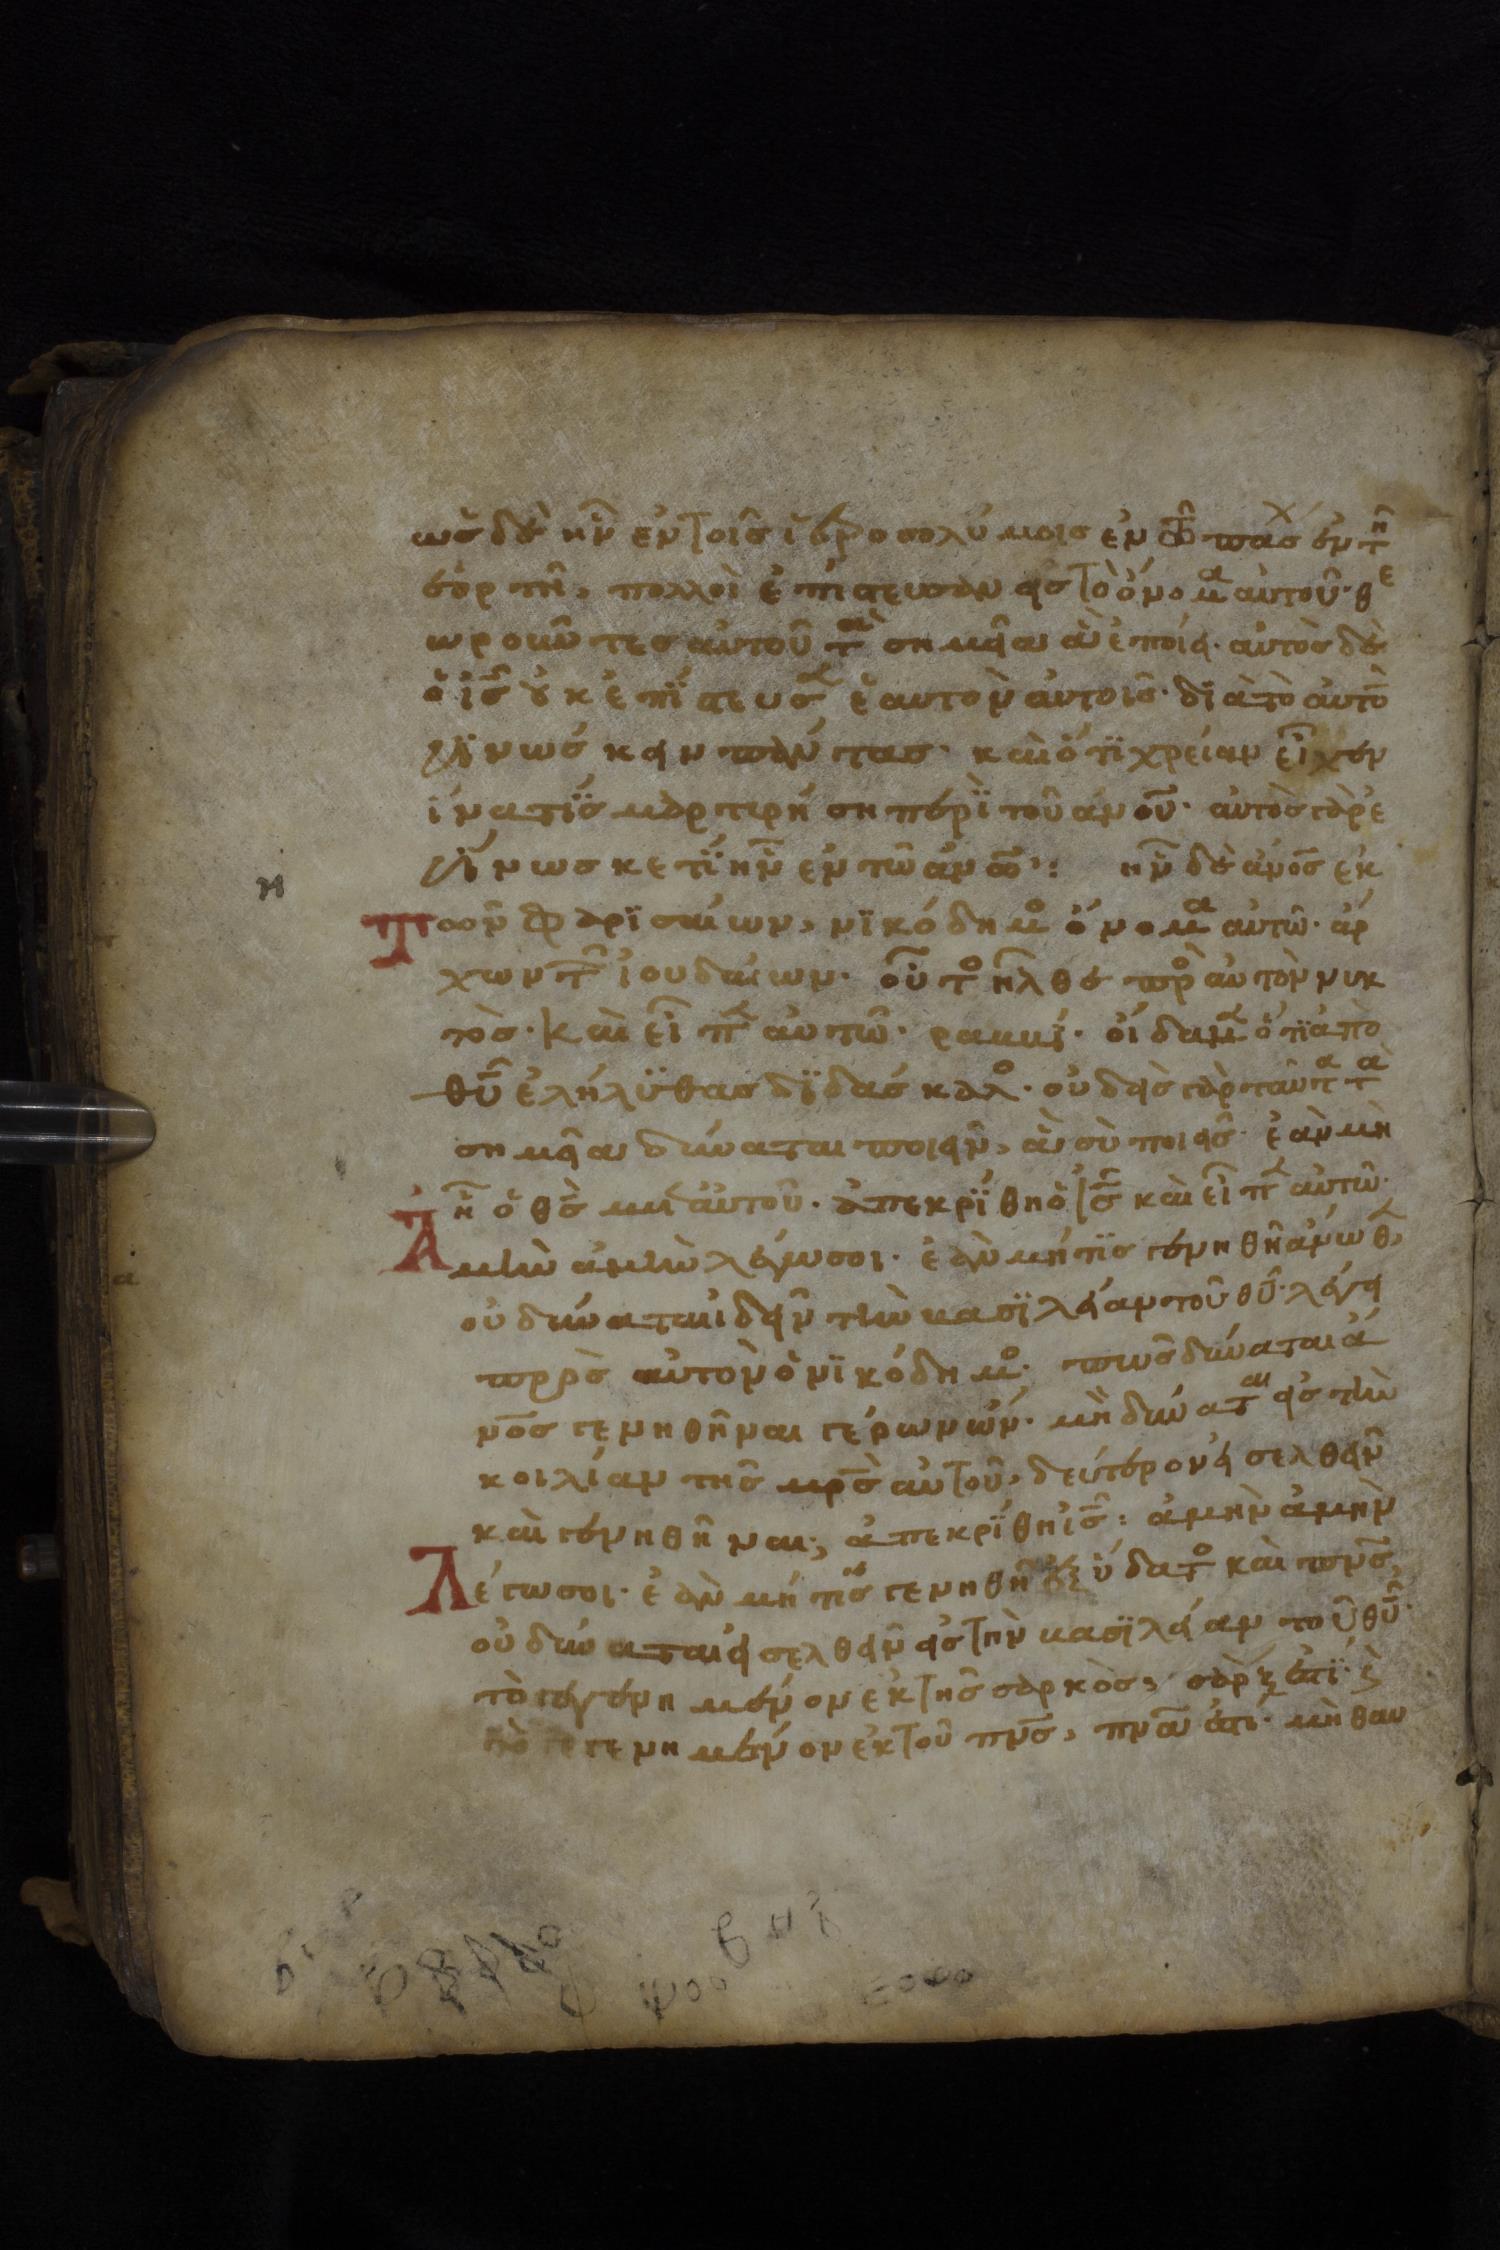 ὡς δὲ ἦν ἐν τοῖς ἱεροσολύμοις ἐν τῶ πάσχ ἐν τῆ
ἑορτῆ, πολλοὶ ἐπίστευσαν εἰς τὸ ὄνομα αὐτοῦ· θε
ωροῦντες αὐτοῦ τὰ σημεῖα ἃ ἐποίει· αὐτὸς δὲ
ὁ ις οὐκ ἐπίστευσεν ἑαυτὸν αὐτοῖς· διὰ τὸ αὐτὸ
γινώσκειν πάντας· καὶ ὅτι χρείαν εἶχεν
ἵνα τίς μαρτυρήση περὶ τοῦ ανου· αὐτὸς γὰρ ἐ
γίνωσκε τί ἦν ἐν τῶ ανω: ἦν δὲ ανος ἐκ
τῶν φαρισαίων, νικόδημος ὄνομα αὐτῶ· ἄρ
χων τῶν ἰουδαίων· οὗτος ἦλθε πρὸς αὐτὸν νυκ
τὸς· καὶ εἶπεν αὐτῶ· ραββί· οἴδαμεν ὅτι ἀπὸ
θυ ἐλήλυθας διδάσκαλος· οὐδεὶς γὰρ ταῦτα τὰ
σημεῖα δύναται ποιεῖν, ἃ σὺ ποιεῖς· ἐὰν μὴ
ἦ ὁ θς μετ αὐτοῦ· ἀπεκρίθη ὁ ις καὶ εἶπεν αὐτῶ·
Ἀμὴν ἀμὴν λέγω σοι· ἐὰν μή τις γεννηθῆ ἄνωθεν,
οὐ δύναται ἰδεῖν τὴν βασιλείαν τοῦ θυ· λέγει
πρὸς αὐτὸν ὁ νικόδημος· πῶς δύναται ἄ
νος γενηθῆναι γέρων ὤν· μὴ δύναται εἰς τὴν
κοιλίαν τῆς μρς αὐτοῦ, δεύτερον εἰσελθεῖν
καὶ γενηθῆναι; ἀπεκρίθη ις: ἀμὴν ἀμὴν
Λέγω σοι· ἐὰν μή τις γενηθῆ ἐξ ὕδατος καὶ πνς,
οὐ δύναται εἰσελθεῖν εἰς τὴν βασιλείαν τοῦ θυ·
τὸ γεγενημένον ἐκ τῆς σαρκὸς, σάρξ ἐστι· καὶ
τὸ γεγενημένον ἐκ τοῦ πνς, πνα ἐστι· μὴ θαυ